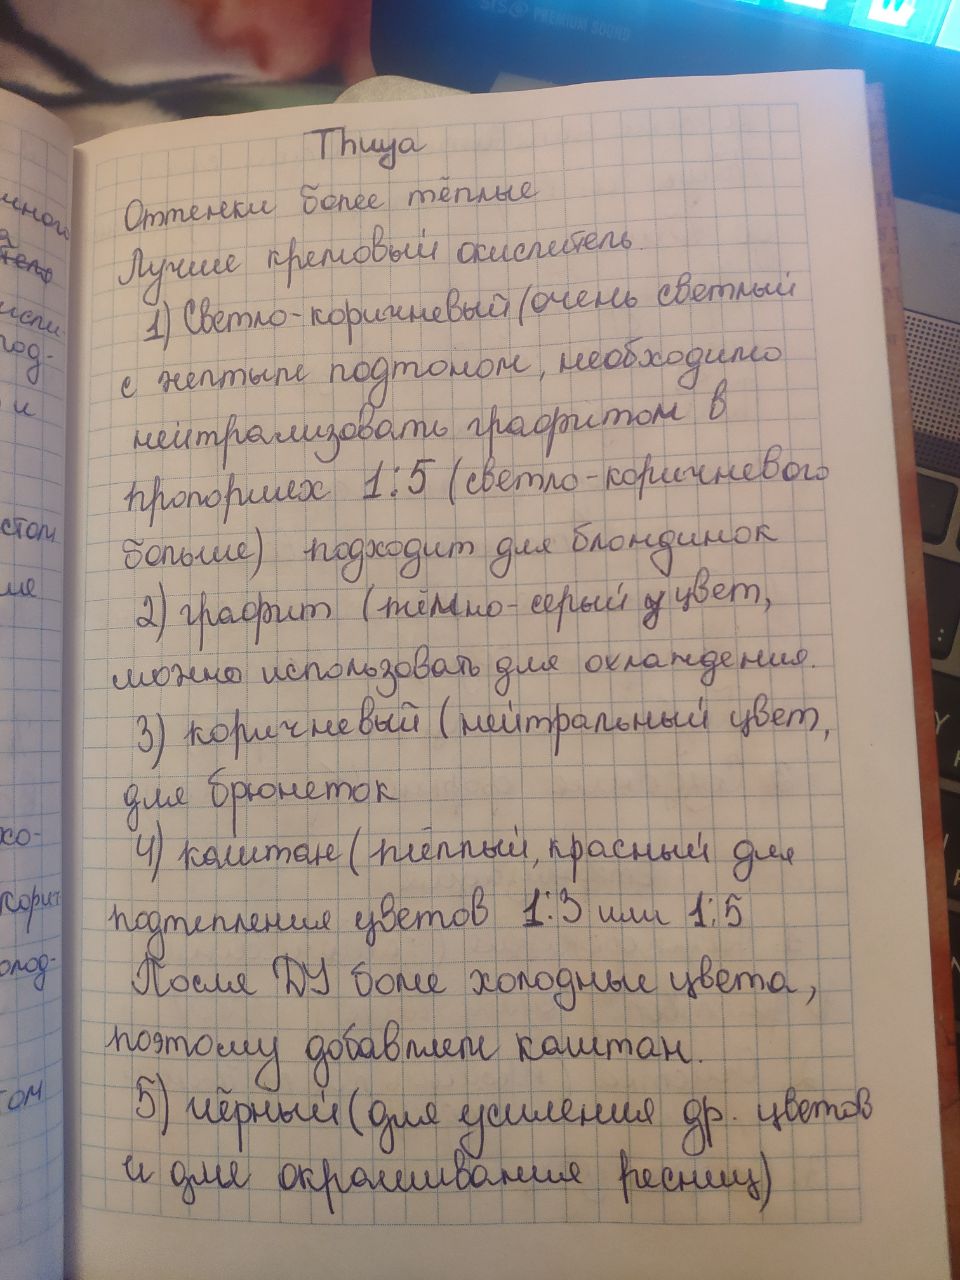 SRS PREMIUM SOUND
Thuya
Оттенки более тёплые
Лучше кремовый окислитель.
1) Светло-коричневый (очень светлый
с желтым подтоном, необходимо
нейтрализовать графитом в
пропорциях 1:5 (светло-коричневого
больше) подходит для блондинок
2) графит (тёмно-серый цвет,
можно использовать для охлаждения.
3) коричневый (нейтральный цвет,
для брюнеток
4) каштан (тёплый, красный для
подтепления цветов 1:3 или 1:5
После ДУ более холодные цвета,
поэтому добавляем каштан.
5) чёрный (для усиления др. цветов
и для окрашивания ресниц)